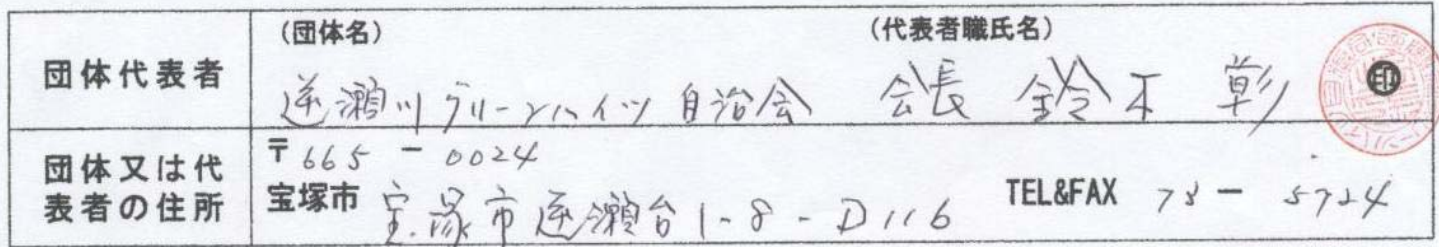 (団体名) (代表者職氏名)
団体代表者 逆瀬川グリーンハイツ自治会 会長 鈴木 彰 印
団体又は代表者の住所 〒665-0024
宝塚市 宝塚市逆瀬台1-8-D116 TEL&FAX 73-5724